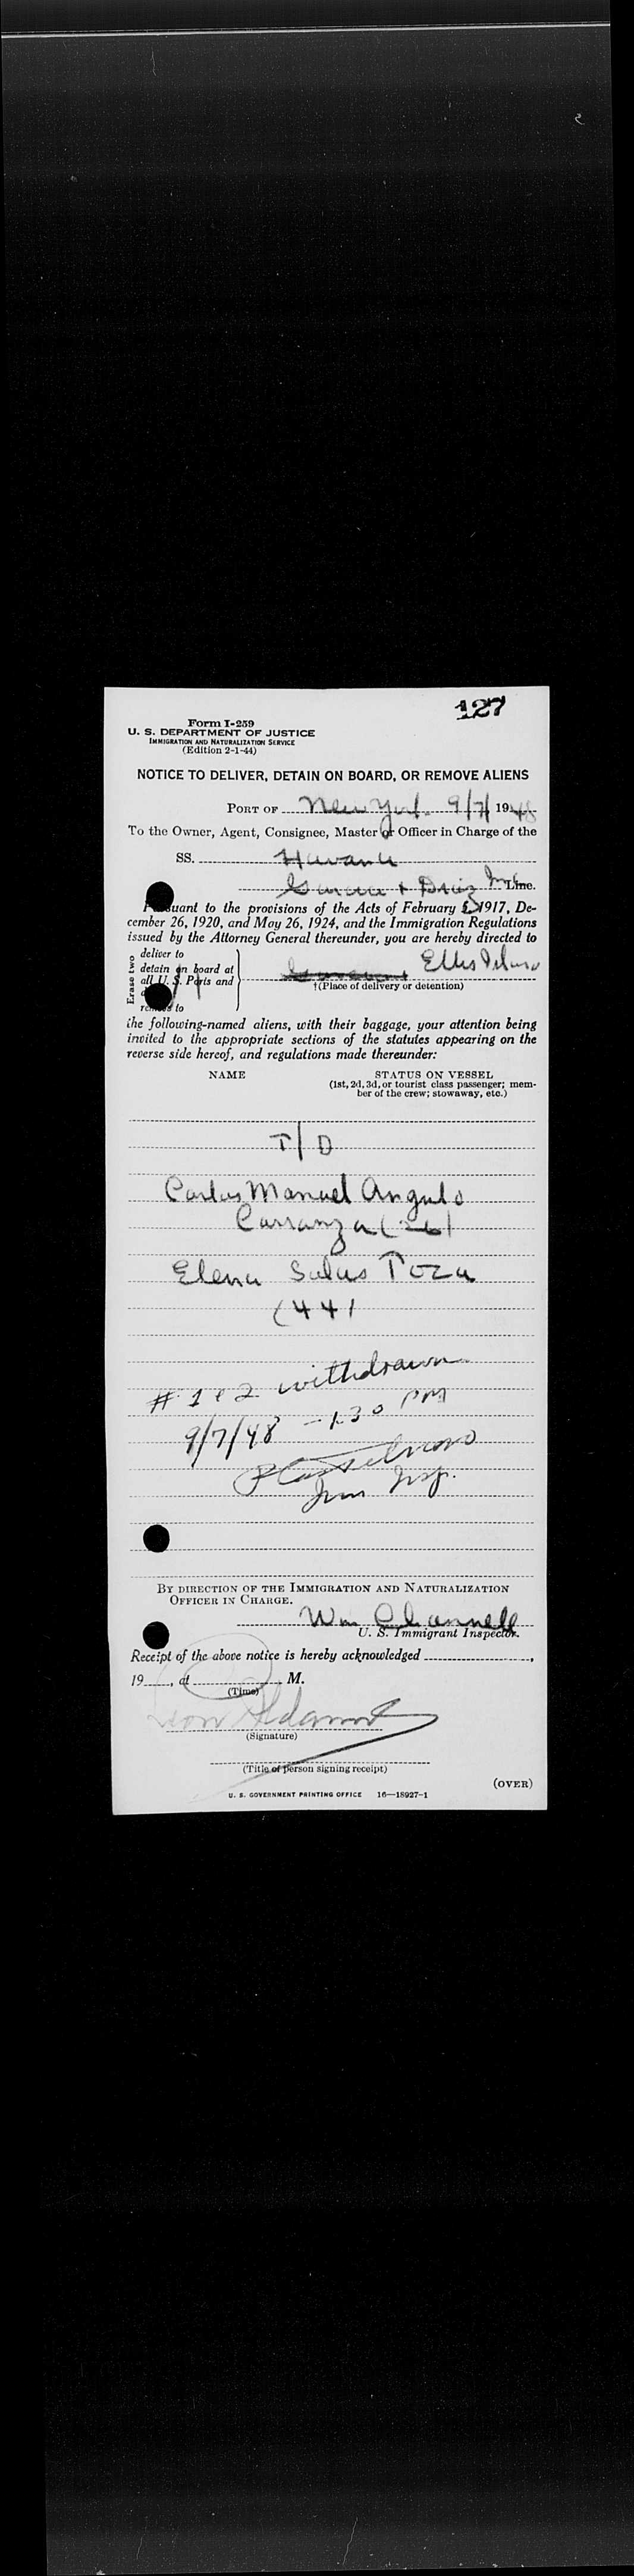 127
Form I-259
U. S. DEPARTMENT OF JUSTICE
IMMIGRATION AND NATURALIZATION SERVICE
(Edition 2-1-44)
NOTICE TO DELIVER, DETAIN ON BOARD, OR REMOVE ALIENS
PORT OF New York 9/7/ 1948
To the Owner, Agent, Consignee, Master or Officer in Charge of the
SS. Havana
Garcia & Diaz Inc Line.
Pursuant to the provisions of the Acts of February 5, 1917, De-
cember 26, 1920, and May 26, 1924, and the Immigration Regulations
issued by the Attorney General thereunder, you are hereby directed to
Erase two
deliver to
detain on board at
all U. S. Ports and
remove to
Ellis Island
†(Place of delivery or detention)
the following-named aliens, with their baggage, your attention being
invited to the appropriate sections of the statutes appearing on the
reverse side hereof, and regulations made thereunder:
NAME STATUS ON VESSEL
(1st, 2d, 3d, or tourist class passenger; mem-
ber of the crew; stowaway, etc.)
T/D
Carlos Manuel Angulo
Carranza (26)
Elena Salas Toza
(44)
# 1 & 2 withdrawn
9/7/48 - 1:30 PM
Imm Insp.
BY DIRECTION OF THE IMMIGRATION AND NATURALIZATION
OFFICER IN CHARGE.
Wm Channell
U. S. Immigrant Inspector.
Receipt of the above notice is hereby acknowledged ,
19 , at M.
(Time)
(Signature)
(Title of person signing receipt)
(OVER)
U. S. GOVERNMENT PRINTING OFFICE 16—18927-1